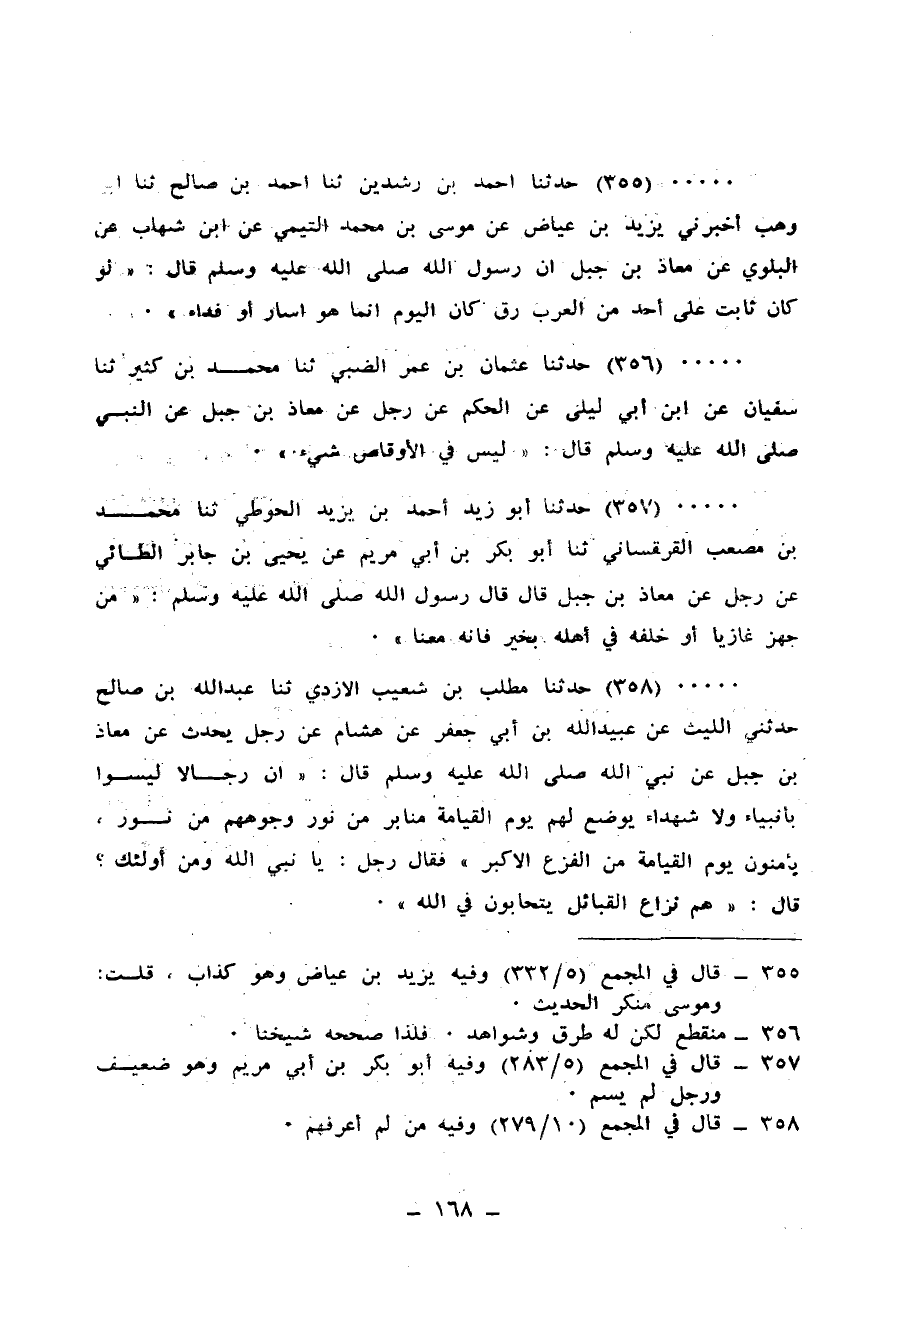 ..... (٣٥٥) حدثنا احمد بن رشدين ثنا احمد بن صالح ثنا
وهب أخبرني يزيد بن عياض عن موسى بن محمد التيمي عن ابن شهاب عن
البلوي عن معاذ بن جبل ان رسول الله صلى الله عليه وسلم قال : « لو
كان ثابت على أحد من العرب رق كان اليوم انما هو اسار أو فداء » .
..... (٣٥٦) حدثنا عثمان بن عمر الضبي ثنا محمد بن كثير ثنا
سفيان عن ابن أبي ليلى عن الحكم عن رجل عن معاذ بن جبل عن النبي
صلى الله عليه وسلم قال : « ليس في الأوقاص شيء » .
..... (٣٥٧) حدثنا أبو زيد أحمد بن يزيد الحوطي ثنا محمد
بن مصعب القرقساني ثنا أبو بكر بن أبي مريم عن يحيى بن جابر الطائي
عن رجل عن معاذ بن جبل قال قال رسول الله صلى الله عليه وسلم : « من
جهز غازيا أو خلفه في أهله بخير فانه معنا » .
..... (٣٥٨) حدثنا مطلب بن شعيب الازدي ثنا عبدالله بن صالح
حدثني الليث عن عبيدالله بن أبي جعفر عن هشام عن رجل يحدث عن معاذ
بن جبل عن نبي الله صلى الله عليه وسلم قال : « ان رجالا ليسوا
بأنبياء ولا شهداء يوضع لهم يوم القيامة منابر من نور وجوههم من نور ،
يأمنون يوم القيامة من الفزع الاكبر » فقال رجل : يا نبي الله ومن أولئك ؟
قال : « هم نزاع القبائل يتحابون في الله » .
٣٥٥ ـ قال في المجمع (٣٣٢/٥) وفيه يزيد بن عياض وهو كذاب ، قلت:
وموسى منكر الحديث .
٣٥٦ ـ منقطع لكن له طرق وشواهد . فلذا صححه شيخنا .
٣٥٧ ـ قال في المجمع (٢٨٣/٥) وفيه أبو بكر بن أبي مريم وهو ضعيف
ورجل لم يسم .
٣٥٨ ـ قال في المجمع (٢٧٩/١٠) وفيه من لم أعرفهم .
ـ ١٦٨ ـ